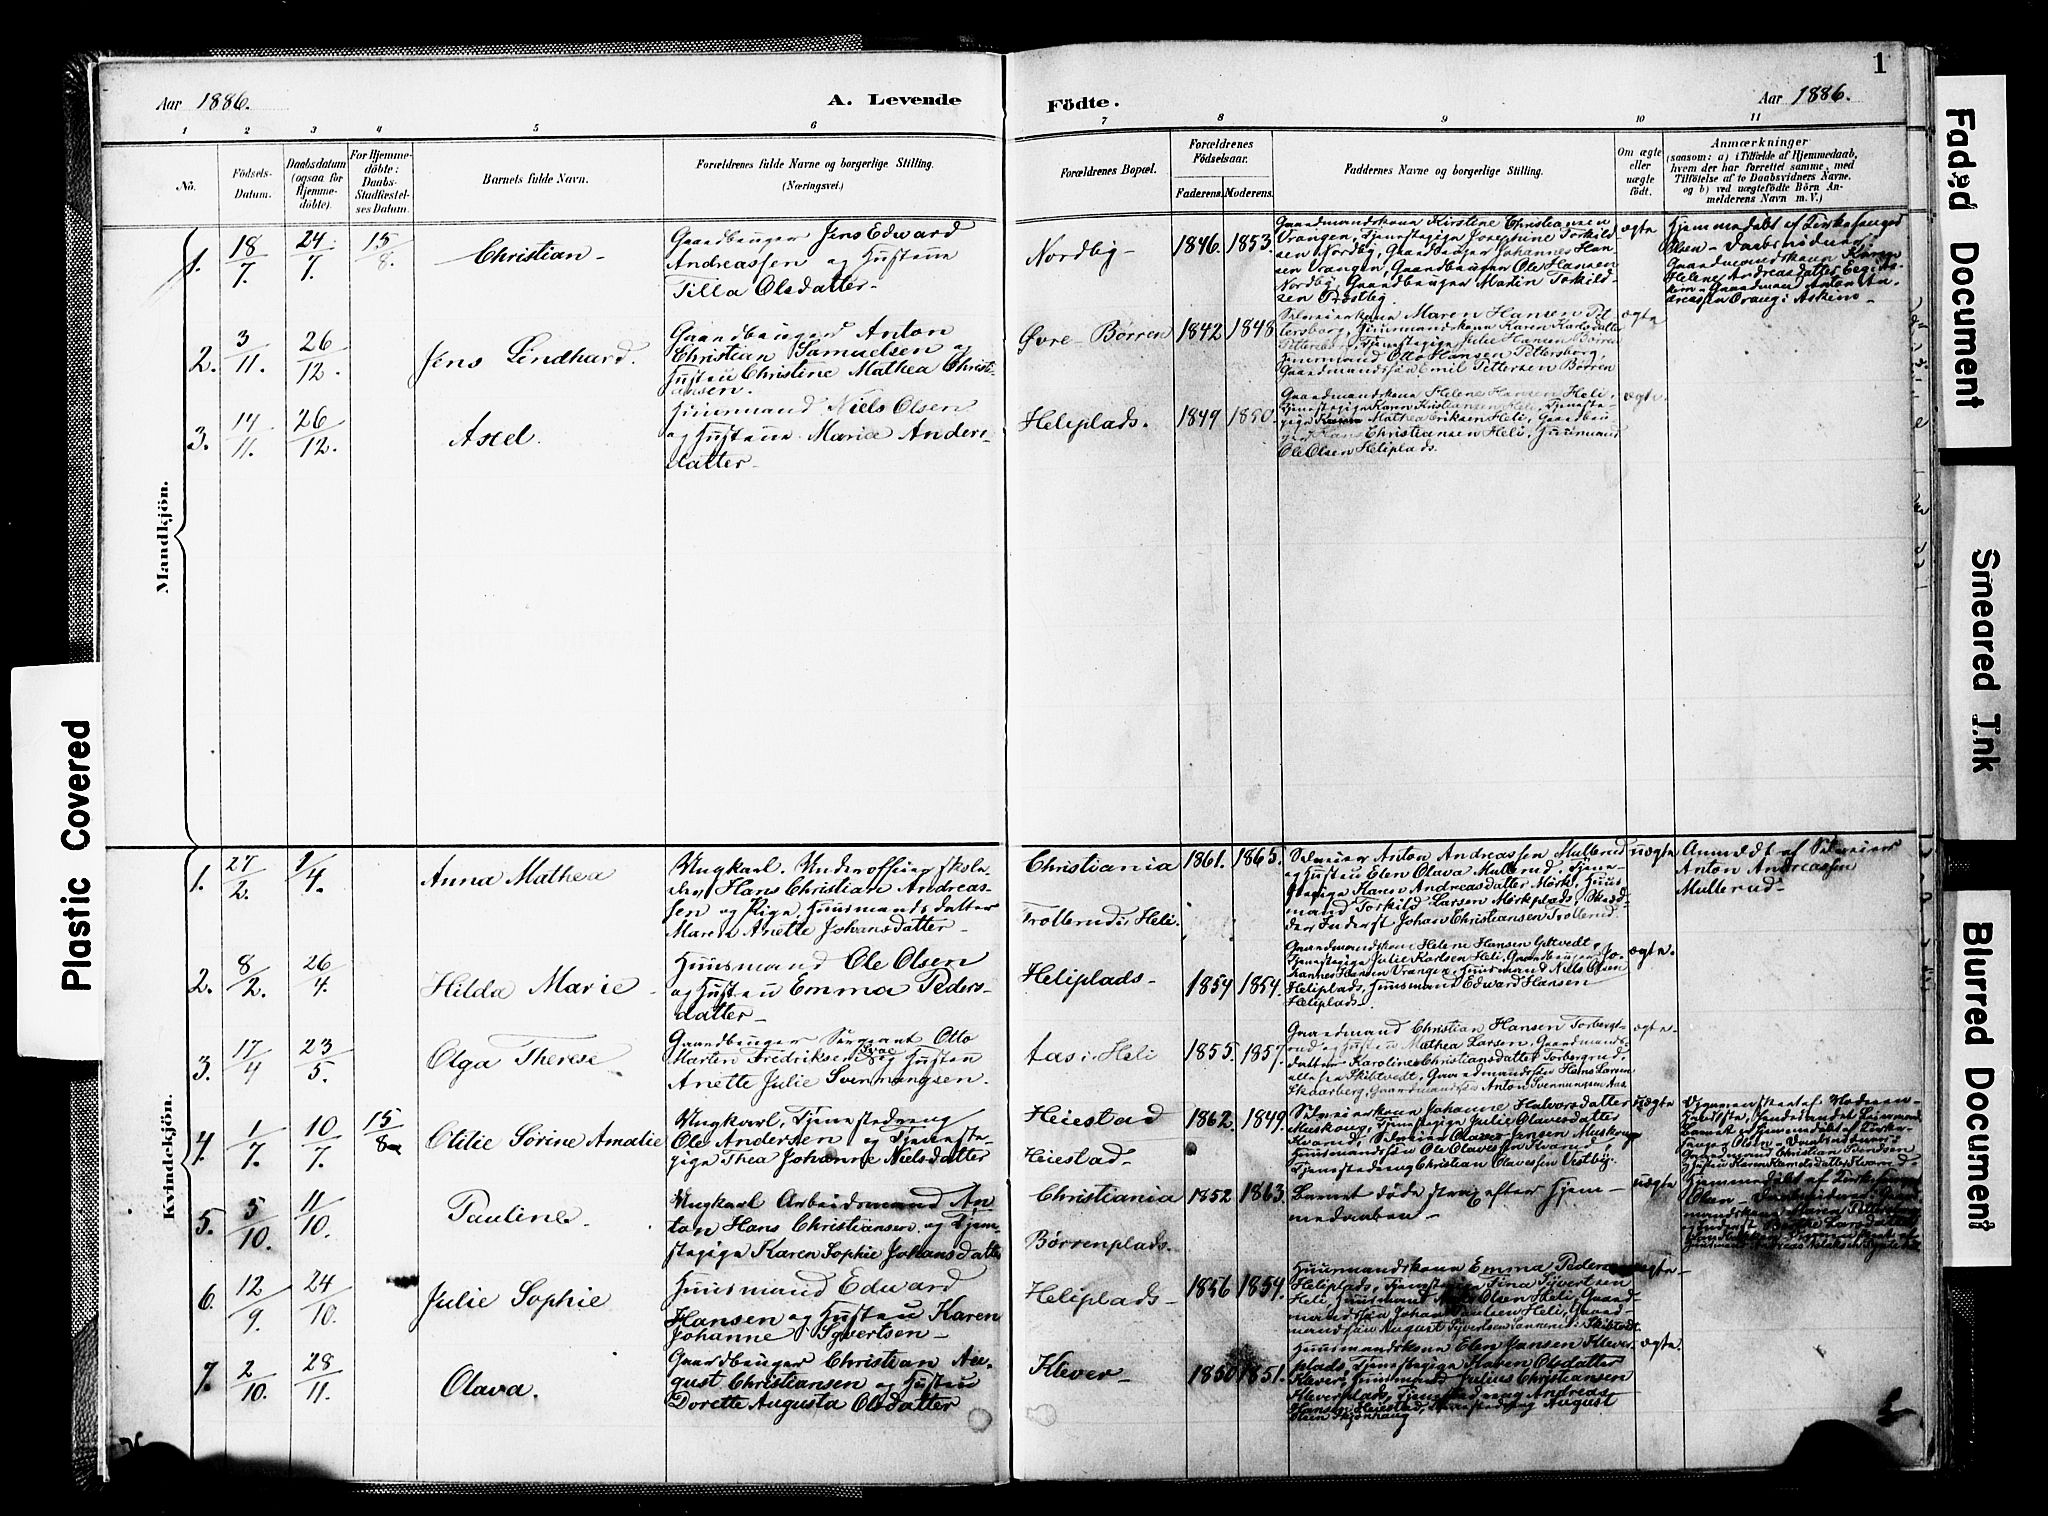 1
Aar 1886.
A. Levende
Födte.
Aar 1886.
1 2 3 4 5 6 7 8 9 10 11
No.
Födsels-
Datum.
Daabsdatum
(ogsaa for
Hjemme-
döbte).
For Hjemme-
döbte:
Daabs-
Stadfæstel-
ses Datum.
Barnets fulde Navn.
Forældrenes fulde Navne og borgerlige Stilling.
(Næringsvei.)
Forældrenes Bopæl.
Forældrenes
Födselsaar.
Faderens. Moderens.
Faddernes Navne og borgerlige Stilling.
Om ægte
eller
uægte
födt.
Anmærkninger
(saasom: a) i Tilfælde af Hjemmedaab,
hvem der har forrettet samme, med
Tilföielse af to Daabsvidners Navne,
og b) ved uægtefödte Börn An-
melderens Navn m. V.)
Mandkjön.
1. 18/7 24/7. 15/8. Christian-
Gaardbruger Jens Edward
Andreassen og Hustru
Tilla Olsdatter-
Nordby- 1846. 1853.
Gaardmandskone Kirstine Christiansen
Vrangen, Tjenestepige Josephine Torkild
sen Nordby, Gaardbruger Johannes Han-
sen Vrangen, Gaardbruger Ole Hansen
Nordby, Gaardbruger Martin Torkild-
sen Præstby.
ægte
Hjemmedøbt af Kirkesanger
Olsen- Daabsvidner:
Gaardmandskone Karen
Helene Andreasdatter
Gaardmand Anton An-
dreassen Vrang i Askim-
2. 3/11. 26/12. Jens Lindhard.
Gaardbruger Anton
Christian Samuelsen og
Hustru Christine Mathea Christi-
ansen.
Øvre-Børren 1842 1848
Selveierkone Maren Hansen Pet-
tersborg, Huusmandskone Karen Karlsdatter
Pettersborg, Tjenestepige Julie Hansen Børren
Huusmand Otto Hansen Pettersborg,
Gaardmandssøn Emil Pettersen Børren
ægte
3. 14/11. 26/12. Axel.
Huusmand Niels Olsen
og Hustru Maria Anders-
datter-
Heliplads. 1849 1850.
Gaardmandskone Helene Hansen Heli,
Tjenestepige Karen Kristiansen Heli, Tjeneste-
pige Mathea Eriksen Heli, Gaardbru-
ger Hans Christiansen Heli, Huusmand
Ole Olsen Heliplads.
ægte.
Kvindekjön.
1. 27/2. 1/4. Anna Mathea
Ungkarl. Underofficerskole-
elev Hans Christian Andreas-
sen og Pige, Huusmandsdatter
Maren Anette Johansdatter-
Christiania
Trollerud i Heli.
1861. 1865.
Selveier Anton Andreassen Mulerud
og Hustru Elen Olava Mulerud, Tjen-
estepige Karen Andreasdatter Mørk, Huus
mand Torkild Larsen Mørkplads, Skræd-
der Inderst Johan Christiansen Trollerud.
uægte
Anmeldt af Selveier
Anton Andreassen
Mulerud-
2. 8/2. 26/4. Hilda Marie-
Huusmand Ole Olsen
og Hustru Emma Peders-
datter-
Heliplads- 1854 1854.
Gaardmandskone Helene Hansen Gltvedt,
Tjenestepige Julie Karlsen Heli, Gaardbruger Jo-
hannes Hansen Vrangen, Huusmand Niels Olsen
Heliplads, Huusmand Edward Hansen
Heliplads-
ægte.
3. 17/4 23/5. Olga Therese
Gaardbruger Sergeant Otto
Martin Fredriksen og Hustru
Anette Julie Svenningsen.
Aas i Heli 1855. 1857.
Gaardmand Christian Hansen Torberg-
rud og Hustru Mathea Larsen, Gaardmands-
datter Karoline Christiansdatter Torbergrud,
alle fra Skibtvedt, Gaardmandssøn Hans Larsen
Skaarberg, Gaardmandssøn Anton Svenningsen Aas
ægte-
4. 1/7. 10/7. 15/8 Otilie Sørine Amalie
Ungkarl, Tjenestedreng
Ole Andersen og Tjeneste-
pige Thea Johanne Nielsdatter
Heiestad
Heiestad-
1862. 1849.
Selveierkone Johanne Halvorsdatter
Muskoug, Tjenestepige Julie Olavesdatter
Kvarud, Selveier Olaves Jensen Muskoug
Huusmandssøn Ole Olavessen Kvarud,
Tjenestedreng Christian Olavessen Vestby.
uægte
5. 5/10. 11/10. Pauline.
Ungkarl Arbeidsmand An-
ton Hans Christiansen og Tjen-
estepige Karen Sophie Johansdatter
Christiania
Børrenplads.
1852 1863.
Barnet døde strax efter Hjem-
medaaben-
uægte
Hjemmedøbt af Kirkesanger
Olsen-
6. 12/9. 24/10. Julie Sophie
Huusmand Edward
Hansen og Hustru Karen
Johanne Syvertsen-
Heliplads- 1856 1854.
Huusmandskone Emma Peders
Heliplads, Tjenestepige Tina Syvertsen
Heli, Huusmand Olsen Heli, Gaard-
mandssøn Johan Paulsen Heli, Gaard-
mandssøn August Syvertsen Sannerud i Skibtvedt.
ægte-
7. 2/10. 28/11. Olava.
Gaardbruger Christian Au-
gust Christiansen og Hustru
Dorette Augusta Olsdatter
Klever- 1850 1851.
Huusmandskone Elen Jansen Klever
plads, Tjenestepige Karen Olsdatter
Klever, Huusmand Julius Christiansen
Kleverplads, Tjenestedreng Andreas
Hansen Heiestad, Tjenestedreng August
Olsen Skjønhaug
ægte.
Plastic Covered
Faded Document
Smeared Ink
Blurred Document